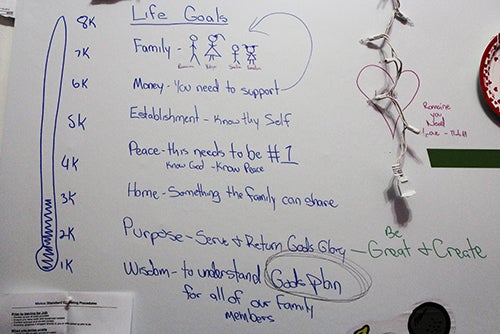 Life Goals
8K
7K
6K
5K
4K
3K
2K
1K
Family -
Money - You need to support
Establishment - Know thy Self
Peace - this needs to be #1
Know God - Know Peace
Home - Something the family can share
Purpose - Serve & Return Gods Glory - Be Great & Create
Wisdom - to understand Gods plan
for all of our Family
members
Romaine
you
Need
Love